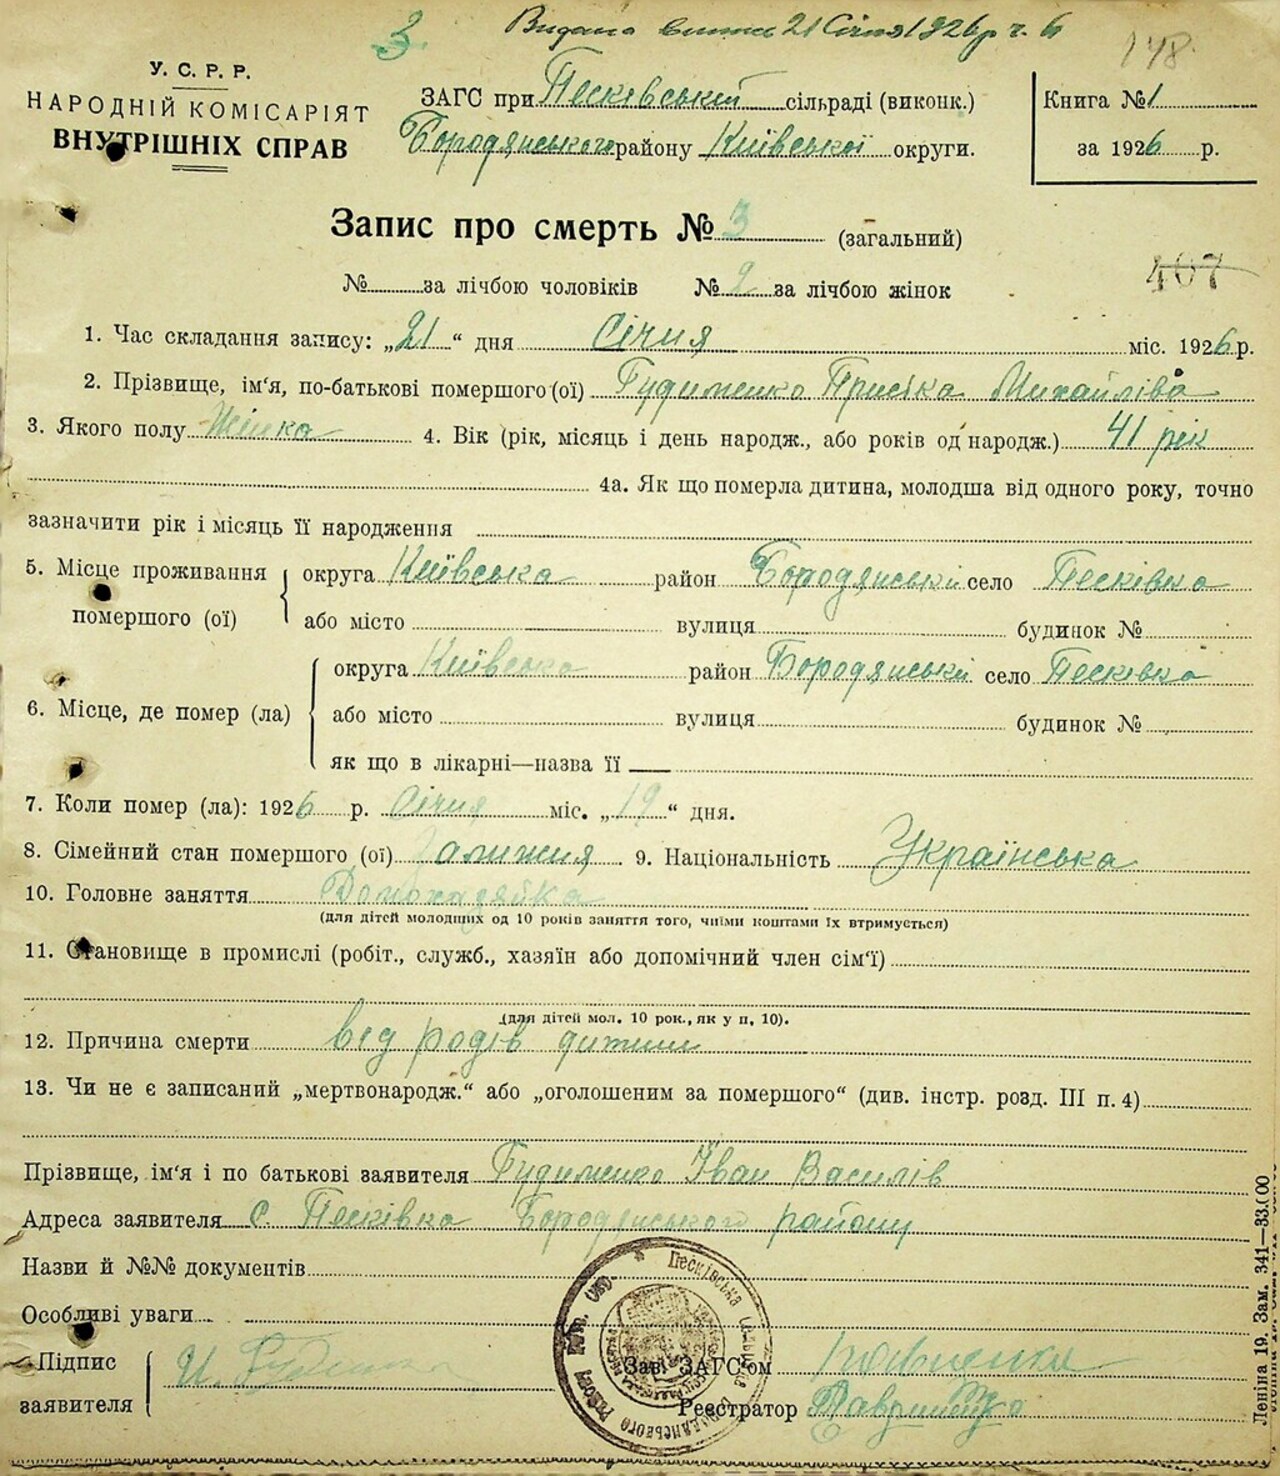 3.
Видано витяг 21 Січня 1926 р ч. 6
148.
У. С. Р. Р.
НАРОДНІЙ КОМІСАРІЯТ
ВНУТРІШНІХ СПРАВ
ЗАГС при Песківській сільраді (виконк.)
Бородянського району Київської округи.
Книга № 1
за 1926 р.
Запис про смерть № 3 (загальний)
№ за лічбою чоловіків № 2 за лічбою жінок
407
1. Час складання запису: „21“ дня Січня міс. 1926 р.
2. Прізвище, ім'я, по-батькові помершого (ої) Гудименко Приська Михайліва
3. Якого полу Жінка 4. Вік (рік, місяць і день народж., або років од народж.) 41 рік
4а. Як що померла дитина, молодша від одного року, точно
зазначити рік і місяць її народження
5. Місце проживання помершого (ої) округа Київська район Бородянський село Песківка
або місто вулиця будинок №
6. Місце, де помер (ла) округа Київська район Бородянській село Песківка
або місто вулиця будинок №
як що в лікарні—назва її
7. Коли помер (ла): 1926 р. Січня міс. „19“ дня.
8. Сімейний стан помершого (ої) Замужня 9. Національність Українська
10. Головне заняття Домохазяйка
(для дітей молодших од 10 років заняття того, чиїми коштами їх втримується)
11. Становище в промислі (робіт., служб., хазяїн або допомічний член сім'ї)
(для дітей мол. 10 рок., як у п. 10).
12. Причина смерти від родів дитини
13. Чи не є записаний „мертвонародж.“ або „оголошеним за помершого“ (див. інстр. розд. III п. 4)
Прізвище, ім'я і по батькові заявителя Гудименко Іван Василів
Адреса заявителя с. Песківка Бородянського району
Назви й №№ документів
Особливі уваги
Підпис заявителя И. Гудименко
Зав. ЗАГС'ом
Реєстратор
Песківська
Леніна 19. Зам. 341—33.000